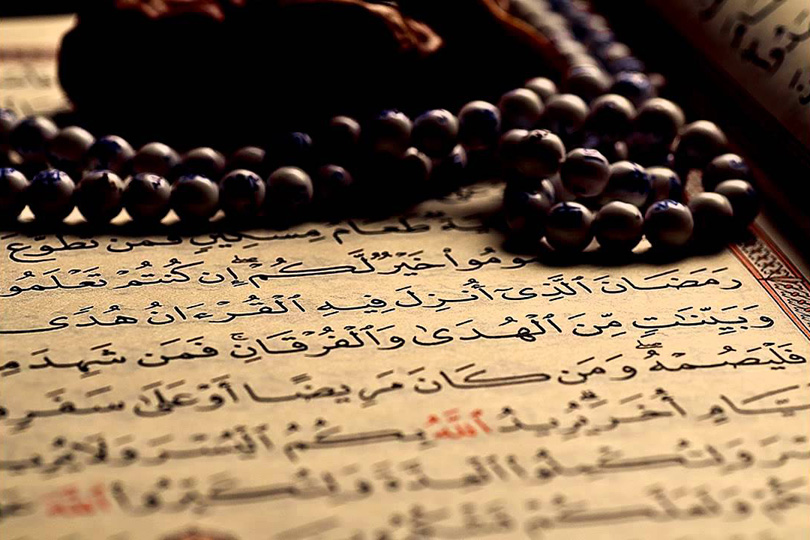 طَعَامُ مِسْكِينٍ فَمَن تَطَوَّعَ
خَيْرٌ لَّكُمْ إِن كُنتُمْ تَعْلَمُو
رَمَضَانَ ٱلَّذِىٓ أُنزِلَ فِيهِ ٱلْقُرْءَانُ هُدًى
وَبَيِّنَٰتٍ مِّنَ ٱلْهُدَىٰ وَٱلْفُرْقَانِ ۚ فَمَن شَهِدَ
فَلْيَصُمْهُ ۖ وَمَن كَانَ مَرِيضًا أَوْ عَلَىٰ سَفَرٍ
أُخَرَ ۗ يُرِيدُ ٱللَّهُ بِكُمُ ٱلْيُسْرَ وَلَا يُرِيدُ
وَلِتُكْمِلُوا۟ ٱلْعِدَّةَ وَلِتُكَبِّرُوا۟ ٱللَّهَ
وَلَعَلَّكُمْ